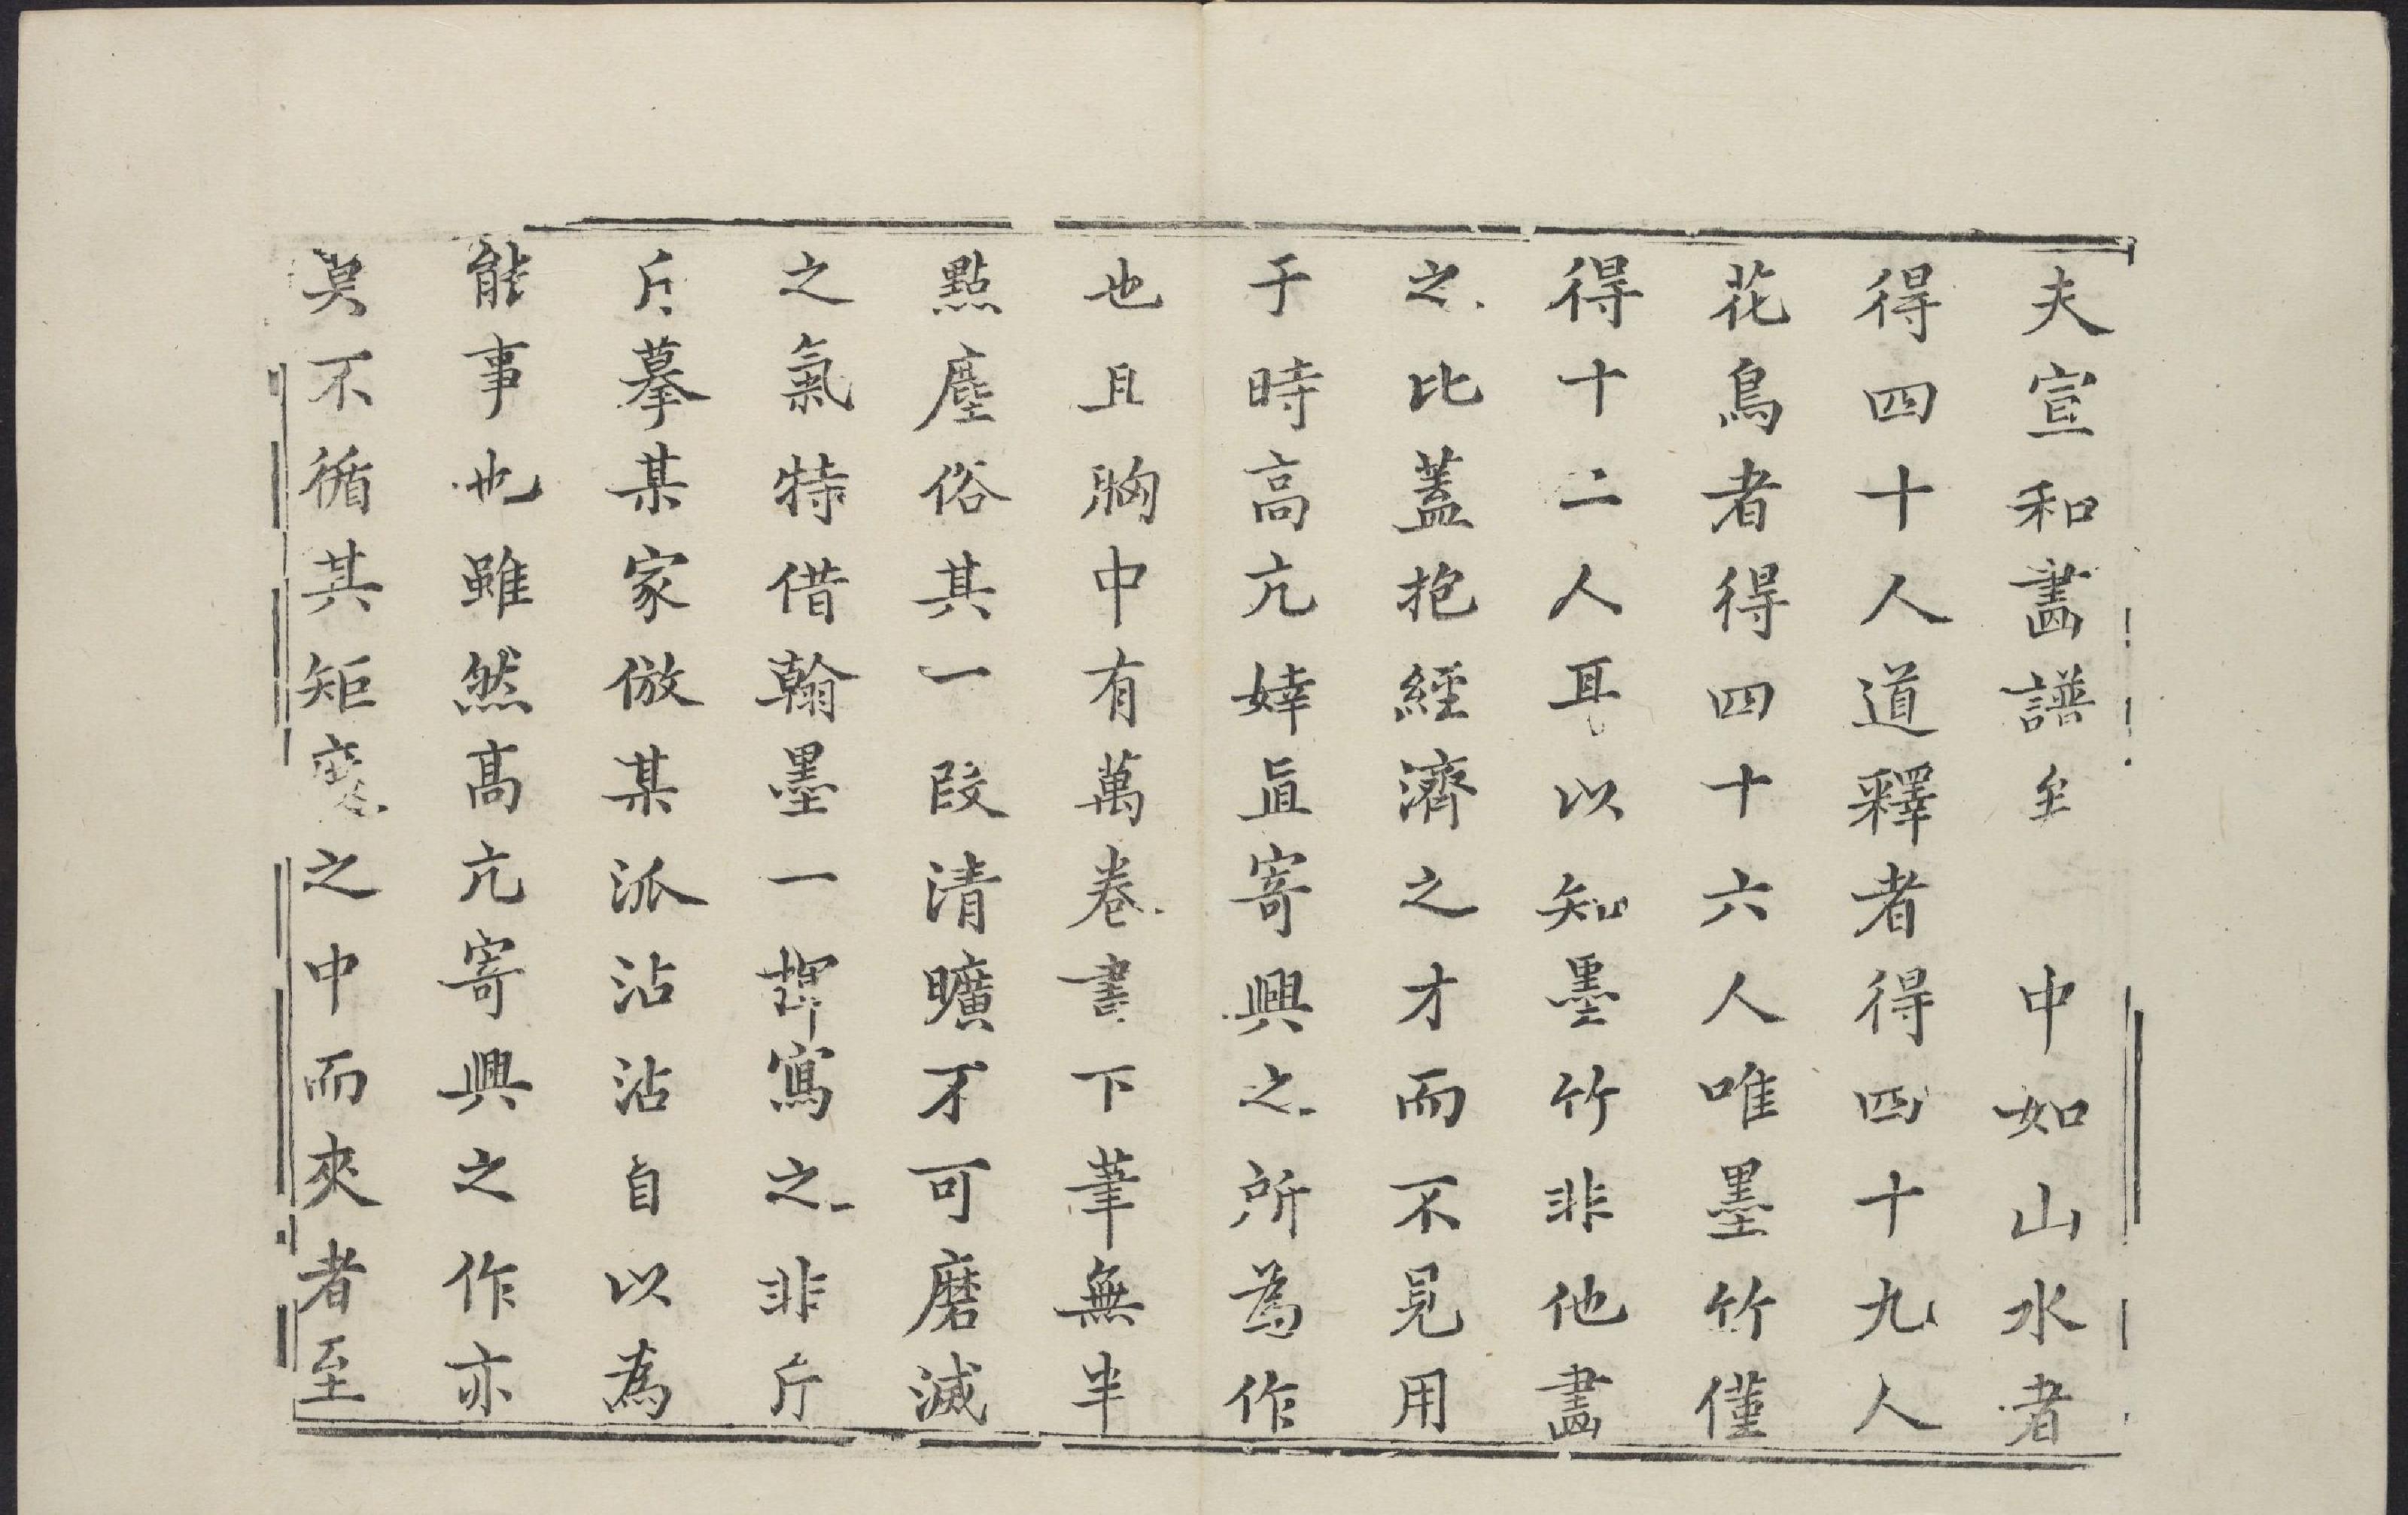 夫宣和畫譜至中如山水者
得四十人道釋者得四十九人
花鳥者得四十六人唯墨竹僅
得十二人耳以知墨竹非他畫
之比蓋抱經濟之才而不見用
于時高亢婞直寄興之所為作
也且胸中有萬卷書下筆無半
點塵俗其一段清曠不可磨滅
之氣特借翰墨一揮寫之非斤
斤摹某家倣某派沾沾自以為
能事也雖然高亢寄興之作亦
莫不循其矩矱之中而夾者至